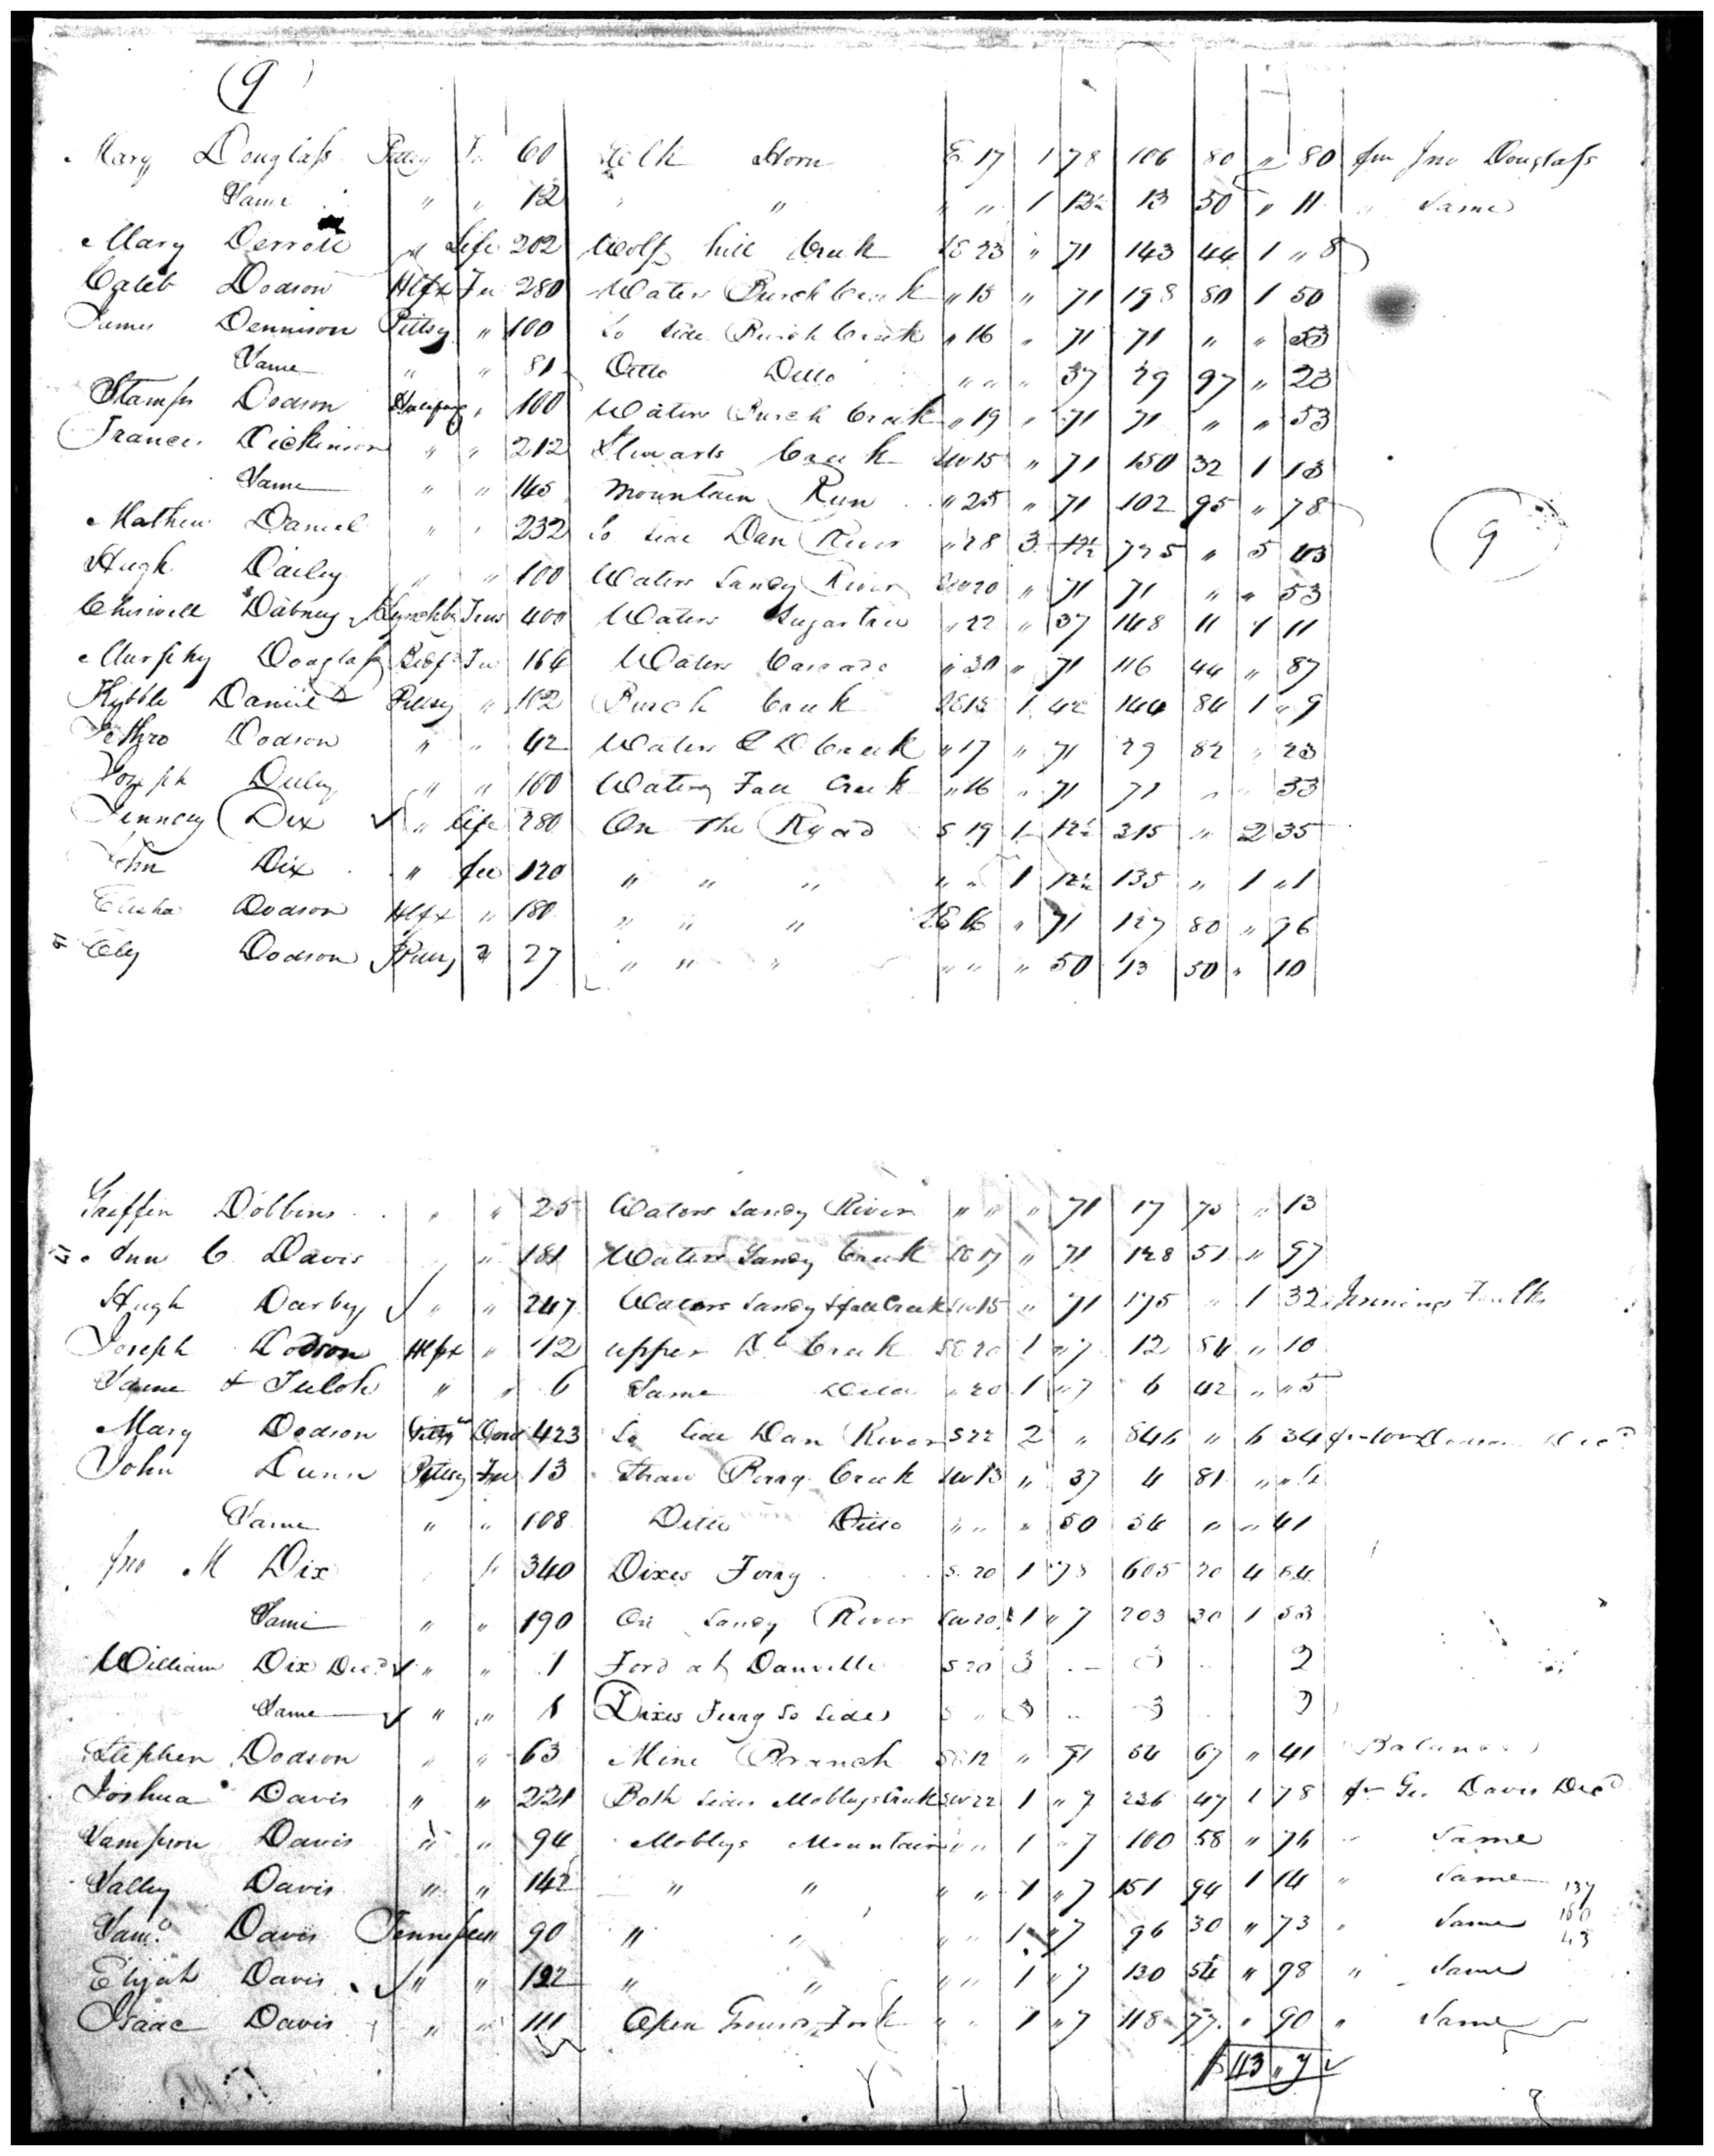 9
Mary Douglass Pittsy Fee 60 Horn E 17 1 78 106 80 " 80 fm Jno Douglass
Same " " 12 " " " 1 12½ 13 50 " 11 " Same
Mary " Life 202 Wolf hill Creek SE 23 " 71 143 44 1 " 8
Caleb Dodson Hlfx Fee 280 Waters Burch Creek " 15 " 71 198 80 1 50
James Dennison Pittsy " 100 So Side Burch Creek " 16 " 71 71 " " 53
Same " " 81 Ditto Ditto " " " 37 29 97 " 23
Stamps Dodson " 100 Waters Burch Creek " 19 " 71 71 " " 53
Francis Dickinson " " 212 Stewarts Creek SW 15 " 71 150 32 1 13
Same " " 145 Mountain Run " 25 " 71 102 95 " 78
Mathew Daniel " " 232 So Side Dan River " 28 3 12½ 725 " 5 43
9
Hugh Dailey " " 100 Waters Sandy River SW 20 " 71 71 " " 53
Chiswell Dabney Lynchbg 400 Waters Sugartree " 22 " 37 148 11 1 11
Murphy Douglass Fee 164 Waters Cascade " 20 " 71 116 44 " 87
Kibble Daniel Pittsy " 102 Burch Creek SE 15 1 42 144 84 1 " 9
Jethro Dodson " " 42 Waters Creek " 17 " 71 29 82 " 23
Joseph " " 100 Waters Fall Creek " 16 " 71 71 " " 53
Dix " Life 280 On The Road S 19 1 12½ 315 " 2 35
John Dix " fee 120 " " " " " 1 12½ 135 " 1 " 1
Elisha Dodson Hlfx " 180 " " " SE 16 " 71 127 80 " 96
Dodson Pittsy " 27 " " " " " " 50 13 50 " 10
Griffin Dobbins " " 25 Waters Sandy River " " " 71 17 75 " 13
Ann C Davis " " 181 Waters Sandy Creek SE 17 " 71 128 51 " 97
Hugh Darby " " 247 Waters Sandy & fall Creek SW 15 " 71 175 " 1 32 Jennings
Joseph Dodson Hlfx " 12 upper Creek SE 20 1 " 7 12 84 " 10
Same & Tuloh " " 6 Same Ditto " 20 1 " 7 6 42 " " 5
Mary Dodson Dower 423 So Side Dan River S 22 2 " 846 " 6 34 fm Wm Dodson Decd
John Dunn Pittsy Fee 13 Creek SW 13 " 37 4 81 " " 4
Same " " 108 Ditto Ditto " " " 50 54 " " 41
Jno M Dix " 340 Dixes Ferry S 20 1 78 605 20 4 54
Same " " 190 On Sandy River SW 20 1 " 7 203 30 1 53
William Dix Decd " " 1 Ford at Danville S 20 3 3 2
Same " " 1 Dixes Ferry So Side S " 3 3 2
Stephen Dodson " " 63 Mine Branch SE 12 " 71 54 67 " 41 Balance
Joshua Davis " " 221 Both Sides Mobleys Creek SW 22 1 " 7 236 47 1 78 fm Geo Davis Decd
Sampson Davis " " 94 Mobleys Mountain " " 1 " 7 100 58 " 76 " Same
Salley Davis " " 142 " " " " 1 " 7 151 94 1 14 " Same 137
Saml Davis Tennessee 90 " " " " 1 " 7 96 30 " 73 " Same
Elijah Davis " " 122 " " " " 1 " 7 130 54 " 98 " Same
Isaac Davis " " 111 Open Ground Fork " " 1 " 7 118 77 " 90 " Same
$ 43 " 7